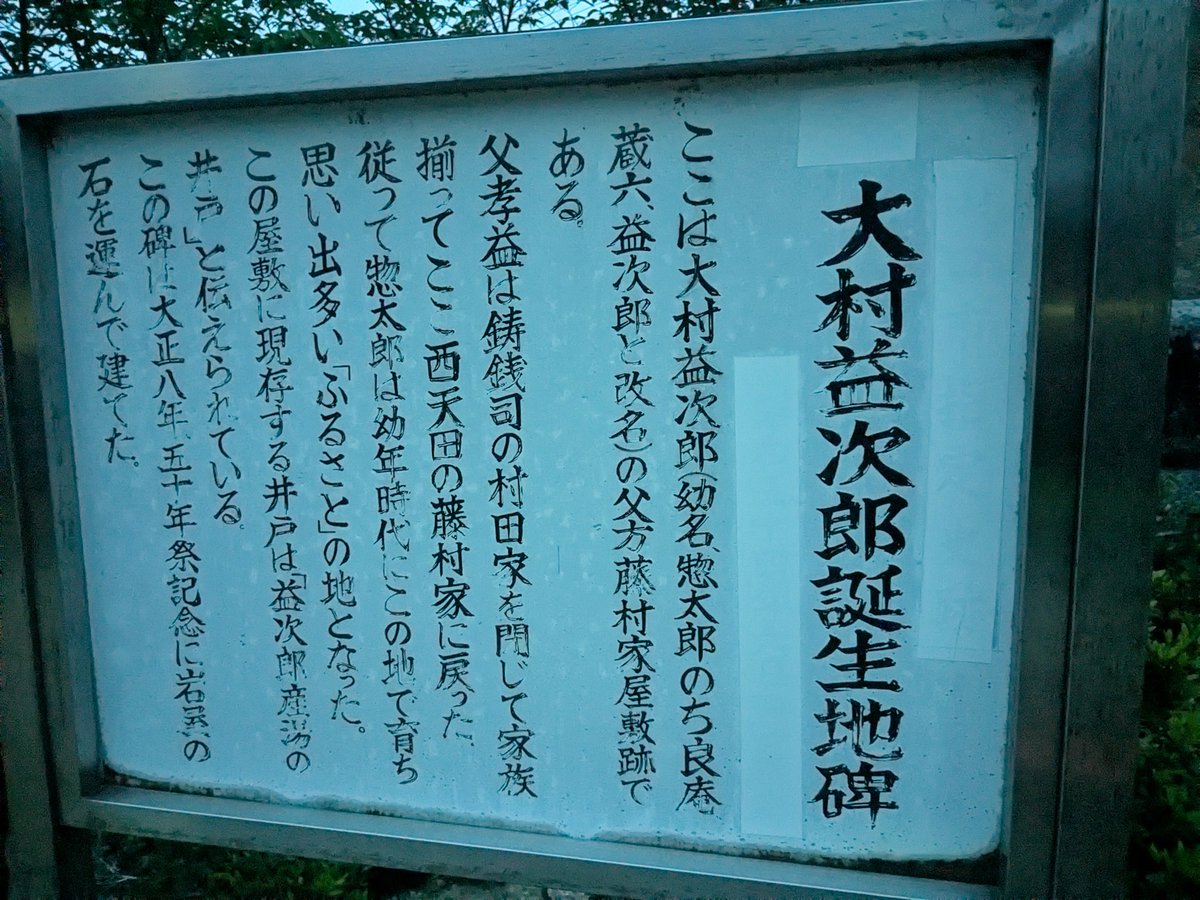 大村益次郎誕生地碑
ここは大村益次郎(幼名、惣太郎のち良庵
蔵六、益次郎と改名)の父方藤村家屋敷跡で
ある。
父孝益は鋳銭司の村田家を閉じて家族
揃ってここ西天田の藤村家に戻った。
従って惣太郎は幼年時代にこの地で育ち
思い出多い「ふるさと」の地となった。
この屋敷に現存する井戸は「益次郎産湯の
井戸」と伝えられている。
この碑は大正八年、五十年祭記念に岩屋の
石を運んで建てた。